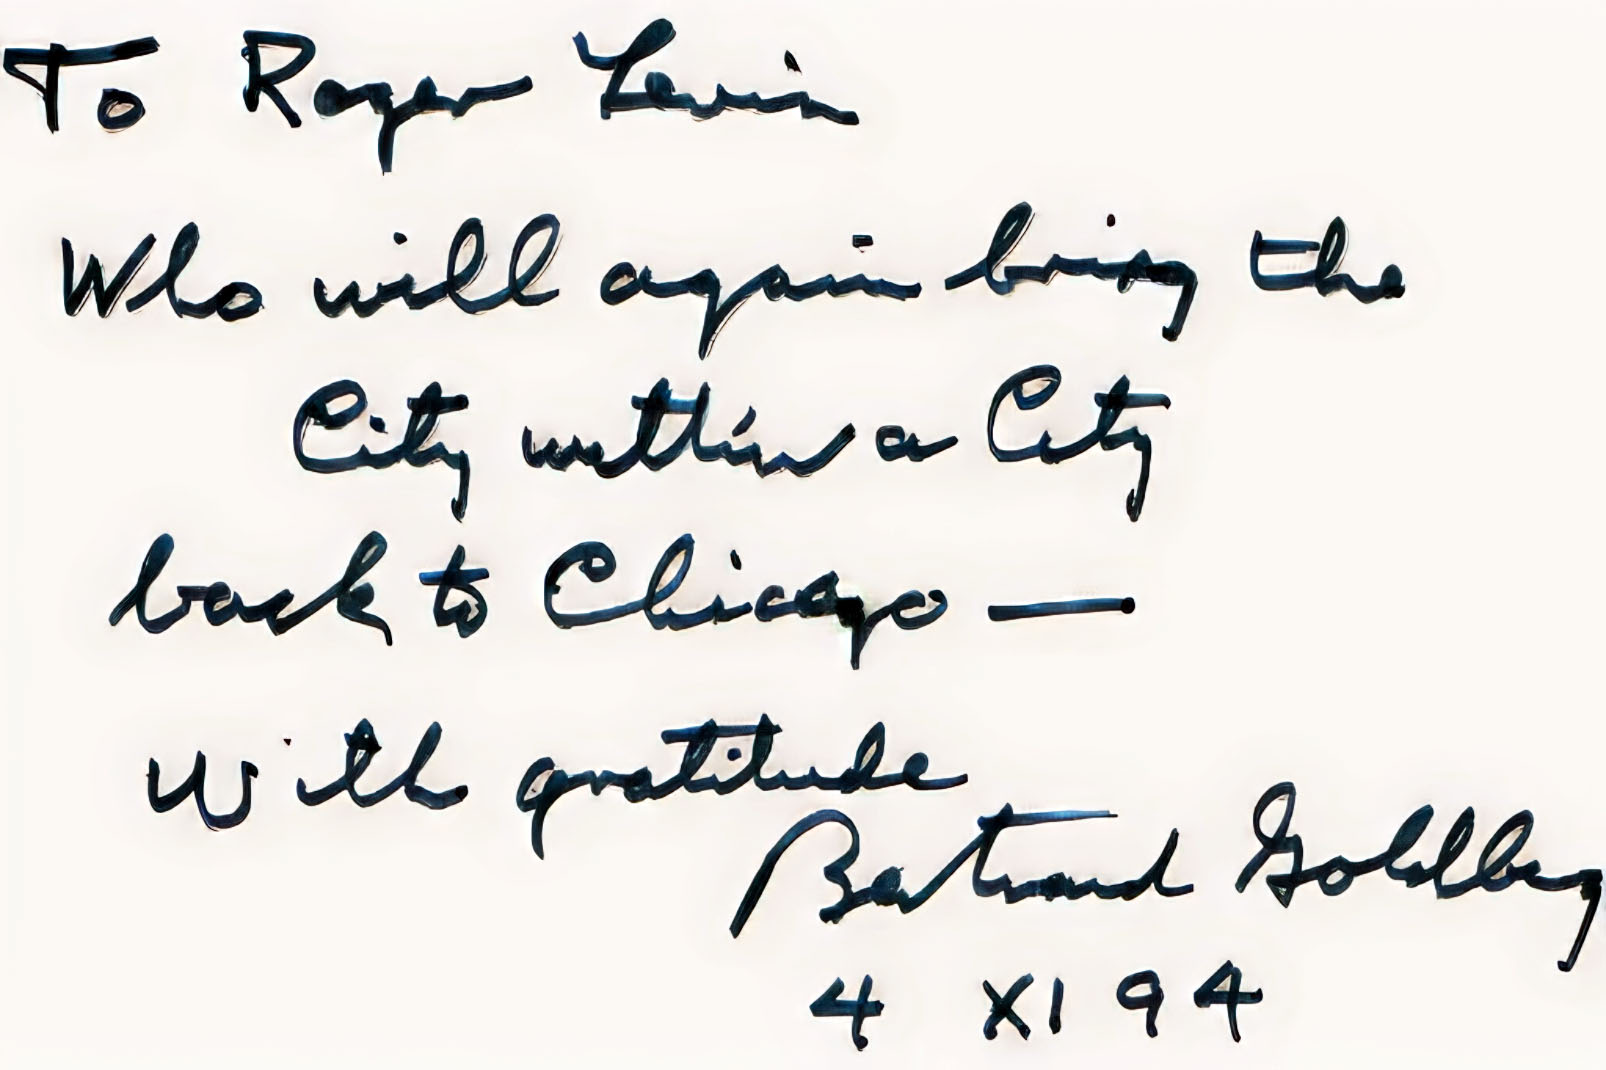 To Roger Levin
Who will again bring the
City within a City
back to Chicago —
With gratitude
Bertrand Goldberg
4 XI 94